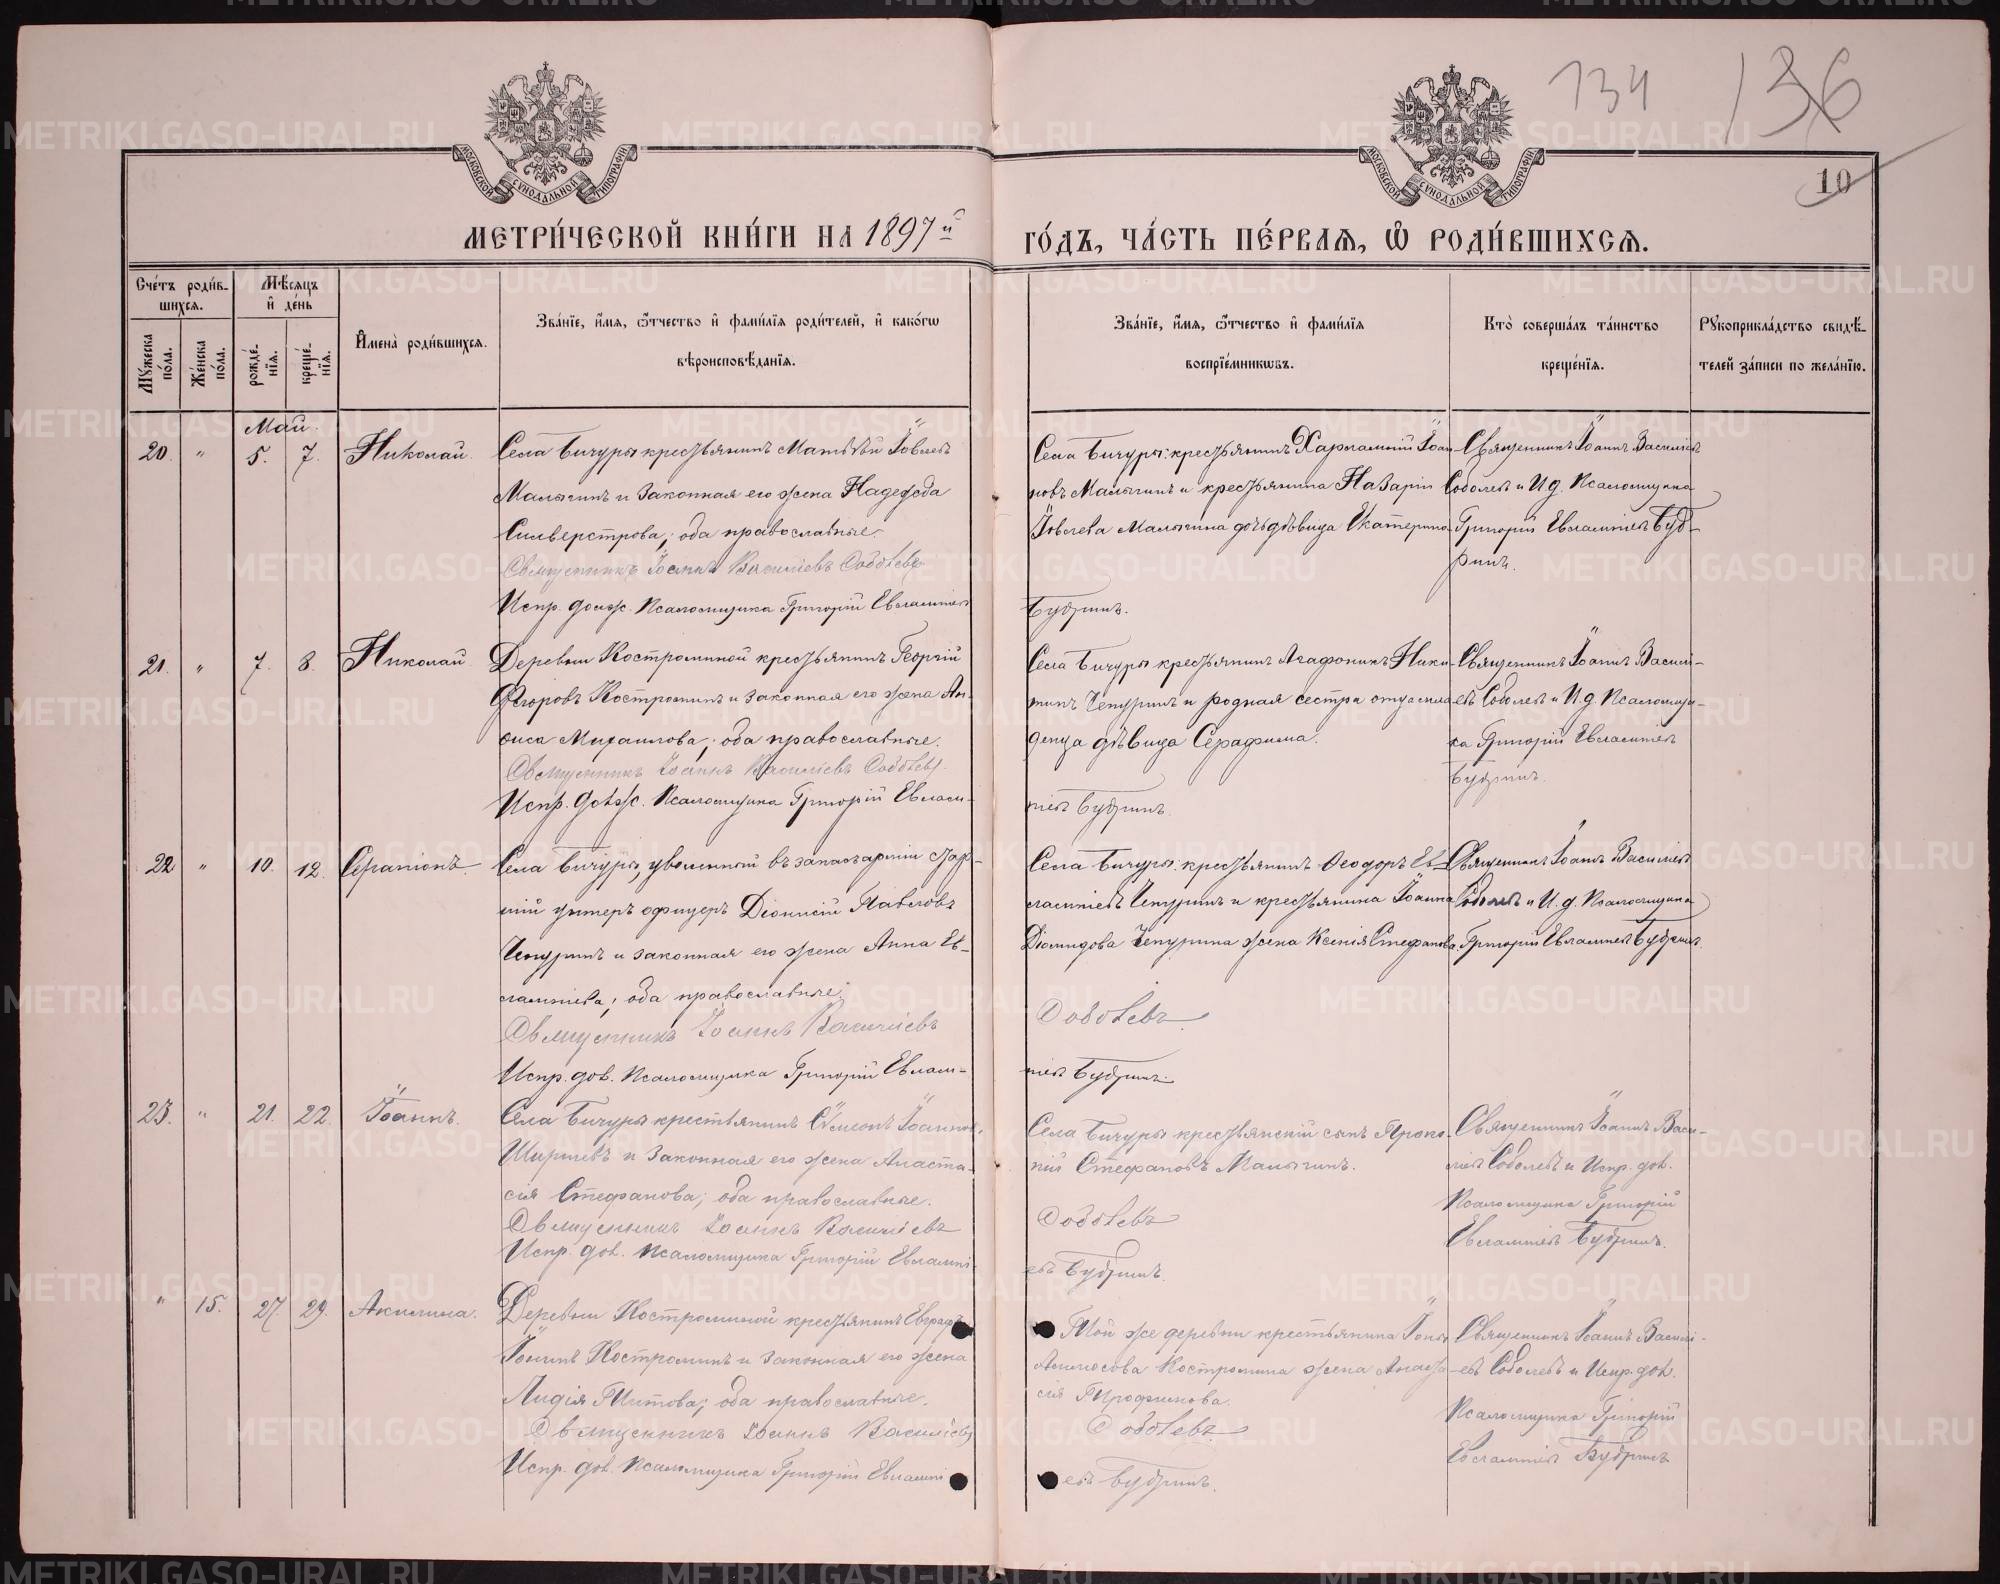 134 136
10
МОСКОВСКОЙ СѴНОДАЛЬНОЙ ТИПОГРАФІИ
МОСКОВСКОЙ СѴНОДАЛЬНОЙ ТИПОГРАФІИ
МЕТРИ́ЧЕСКОЙ КНИ́ГИ НА 1897й ГО́ДЪ, ЧА́СТЬ ПЕ́РВАЯ, Ѡ҆ РОДИ́ВШИХСЯ.
Сче́тъ роди́в-
шихся.
Мѣ́сяцъ
и҆ де́нь
Мꙋ́жеска по́ла.
Же́нска по́ла.
рожде́-нїя.
креще́-нїя.
И҆мена̀ роди́вшихся.
Зва́нїе, и҆́мя, ѻ҆́тчество и҆ фами́лїя роди́телей, и҆ како́гѡ
вѣроисповѣ́данїя.
Зва́нїе, и҆́мя, ѻ҆́тчество и҆ фами́лїя
воспрїе́мникѡвъ.
Кто̀ соверша́лъ та́инство
креще́нїя.
Рꙋкоприкла́дство свидѣ́-
телей за́писи по жела́нїю.
Май.
20. " 5. 7. Николай.
Села Бичуры крестьянинъ Матѳѣй Іовлевъ
Малыгинъ и законная его жена Надежда
Сильверстрова; оба православные.
Священникъ Іоаннъ Василіевъ Соболевъ
Испр. долж. Псаломщика Григорій Евлампіевъ
Села Бичуры: крестьянинъ Харлампій Іоан-
новъ Малыгинъ и крестьянина Назарія
Іовлева Малыгина дочь дѣвица Екатерина.
Бубринъ.
Священникъ Іоаннъ Василіевъ
Соболевъ и И.д. Псаломщика
Григорій Евлампіевъ Буб-
ринъ.
21. " 7. 8. Николай.
Деревни Костроминой крестьянинъ Георгій
Егоровъ Костроминъ и законная его жена Ан-
фиса Михаилова; оба православные.
Священникъ Іоаннъ Василіевъ Соболевъ.
Испр. долж. Псаломщика Григорій Евлам-
Села Бичуры крестьянинъ Агафоникъ Ники-
тинъ Чепуринъ и родная сестра отца мла-
денца дѣвица Серафима.
піевъ Бубринъ.
Священникъ Іоаннъ Василі-
евъ Соболевъ и И.д. Псаломщи-
ка Григорій Евлампіевъ
Бубринъ.
22 " 10. 12. Серапіонъ.
Села Бичуры, уволенный въ запасъ арміи млад-
шій унтеръ офицеръ Діонисій Павловъ
Чепуринъ и законная его жена Анна Ев-
лампіева; оба православные.
Священникъ Іоаннъ Василіевъ
Испр. дол. Псаломщика Григорій Евлам-
Села Бичуры: крестьянинъ Ѳеодоръ Ев-
лампіевъ Чепуринъ и крестьянина Іоанна
Діомидова Чепурина жена Ксенія Стефанова.
Соболевъ.
піевъ Бубринъ.
Священникъ Іоаннъ Василіевъ
Соболевъ и И.д. Псаломщика
Григорій Евлампіевъ Бубринъ.
23. " 21. 22. Іоаннъ.
Села Бичуры крестьянинъ Сѵмеонъ Іоанновъ
Ширяевъ и законная его жена Анаста-
сія Стефанова; оба православные.
Священникъ Іоаннъ Василіевъ
Испр. дол. Псаломщика Григорій Евлампі-
Села Бичуры крестьянскій сынъ Проко-
пій Стефановъ Малыгинъ.
Соболевъ
евъ Бубринъ.
Священникъ Іоаннъ Васи-
ліевъ Соболевъ и Испр. дол.
Псаломщика Григорій
Евлампіевъ Бубринъ.
" 15. 27. 29. Акилина.
Деревни Костроминой крестьянинъ Евграфъ
Іонинъ Костроминъ и законная его жена
Лидія Титова; оба православные.
Священникъ Іоаннъ Василіевъ
Испр. дол. Псаломщика Григорій Евлампі
Той же деревни крестьянина Іоны
Костромина жена Анаста-
сія Трофимова.
Соболевъ
евъ Бубринъ.
Священникъ Іоаннъ Василі-
евъ Соболевъ и Испр. дол.
Псаломщика Григорій
Евлампіевъ Бубринъ
METRIKI.GASO-URAL.RU